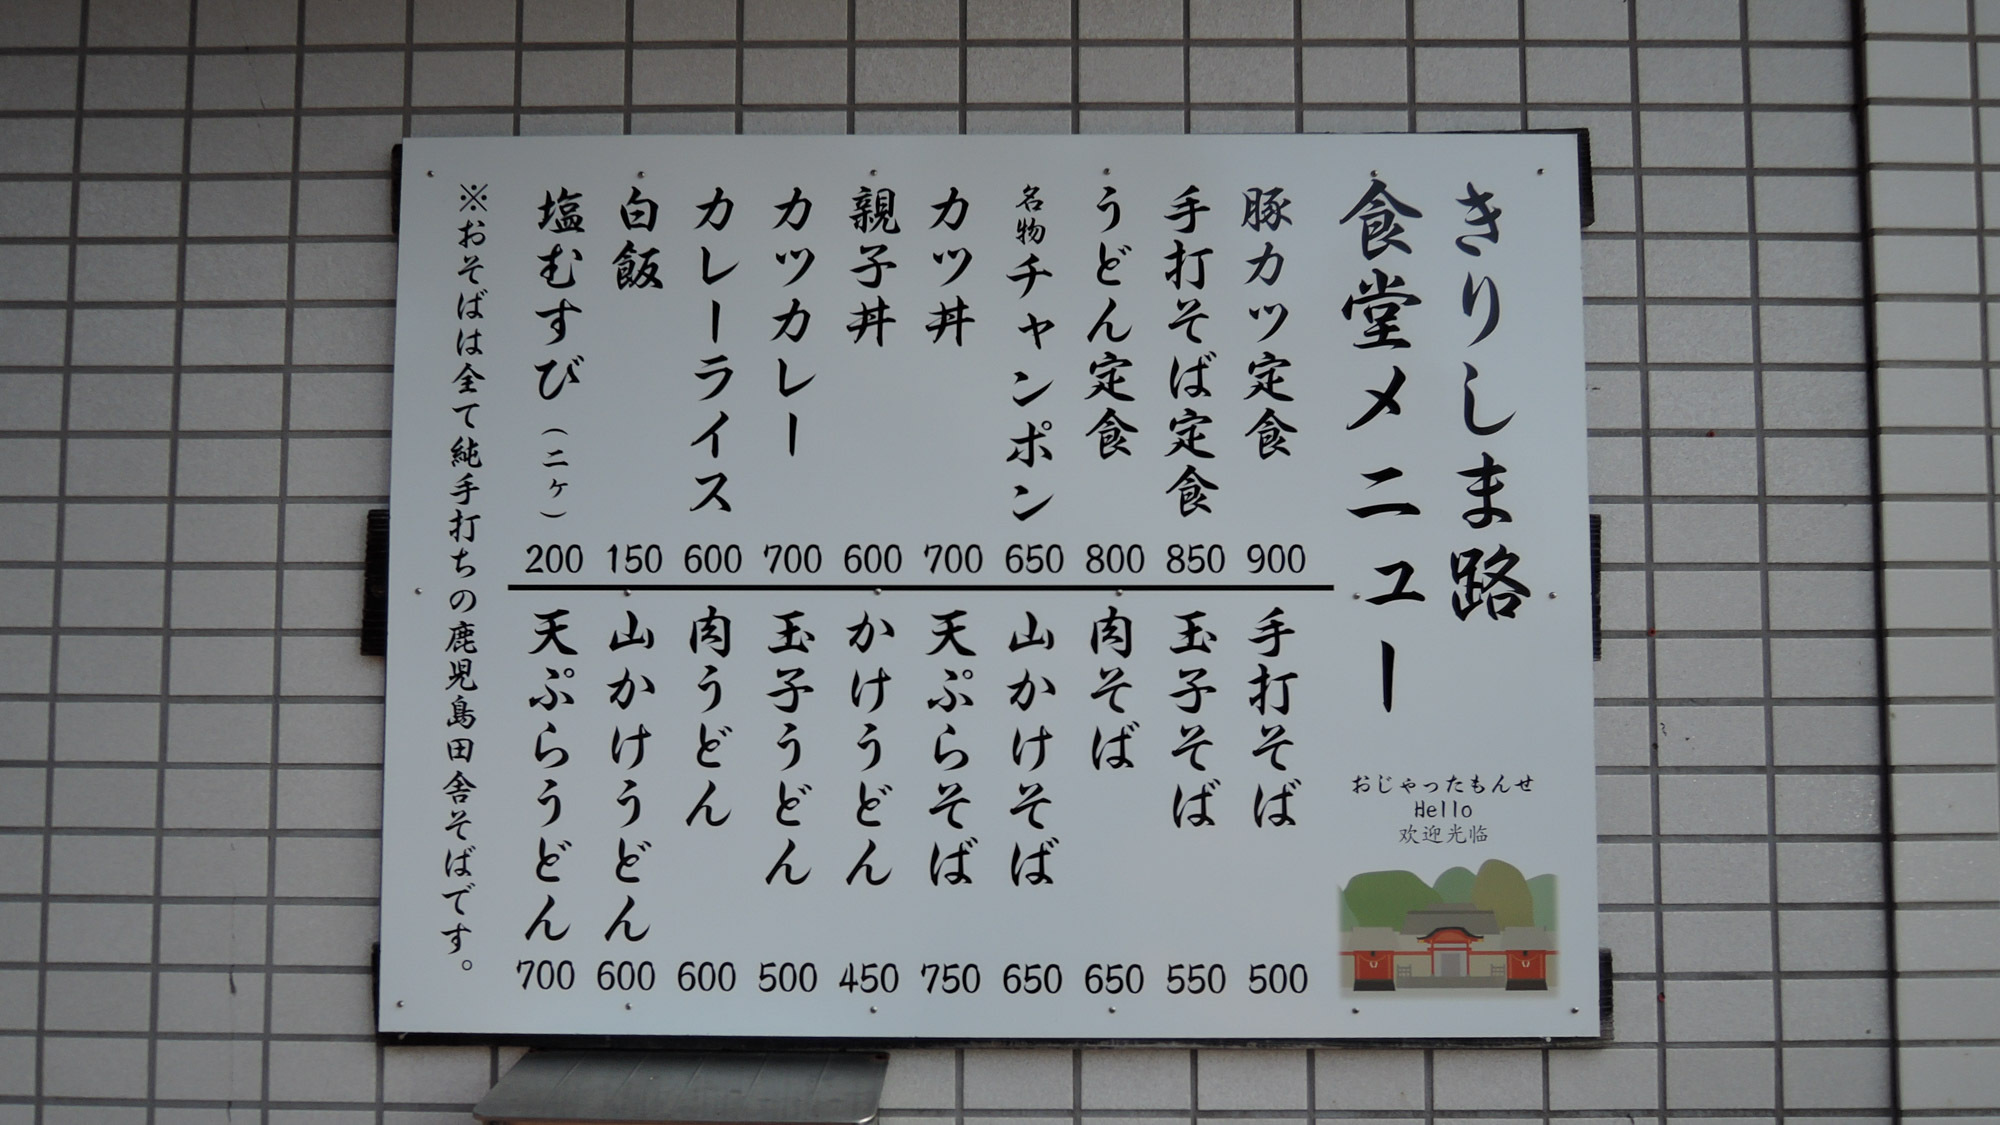 きりしま路
食堂メニュー
おじゃったもんせ
Hello
欢迎光临
豚カツ定食 900
手打そば定食 850
うどん定食 800
名物チャンポン 650
カツ丼 700
親子丼 600
カツカレー 700
カレーライス 600
白飯 150
塩むすび（二ヶ） 200
手打そば 500
玉子そば 550
肉そば 650
山かけそば 650
天ぷらそば 750
かけうどん 450
玉子うどん 500
肉うどん 600
山かけうどん 600
天ぷらうどん 700
※おそばは全て純手打ちの鹿児島田舎そばです。